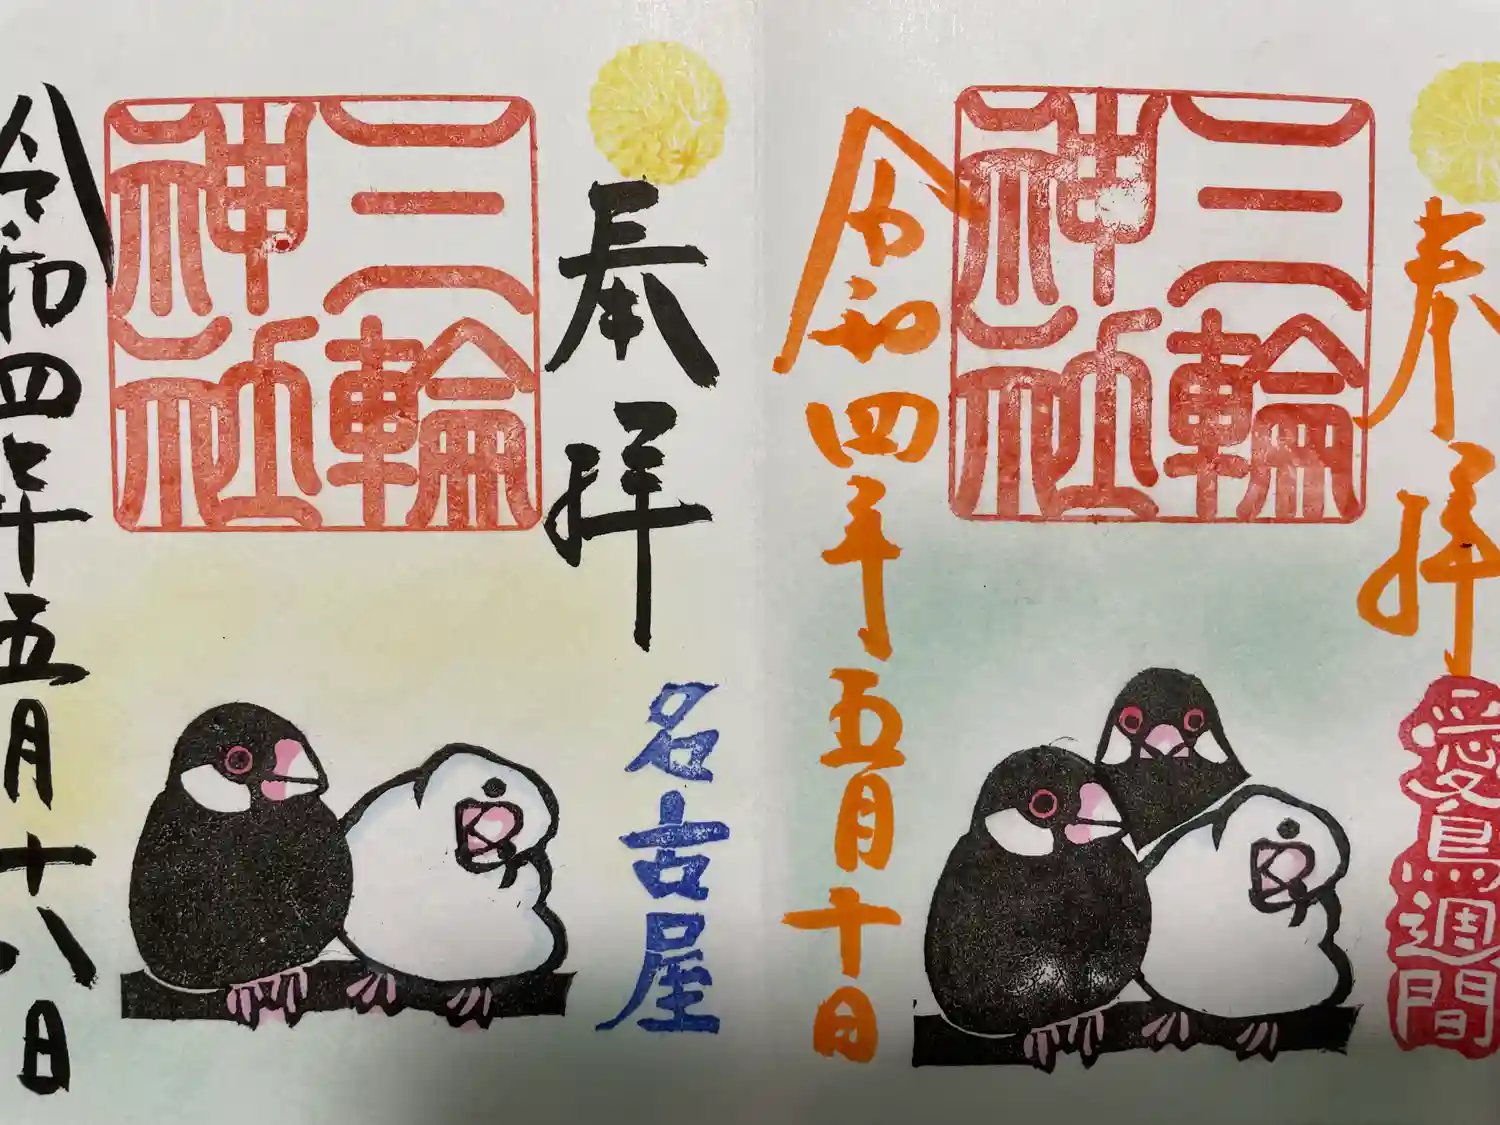 奉拝
愛鳥週間
三輪
神社
令和四年五月十日
奉拝
名古屋
三輪
神社
令和四年五月十八日